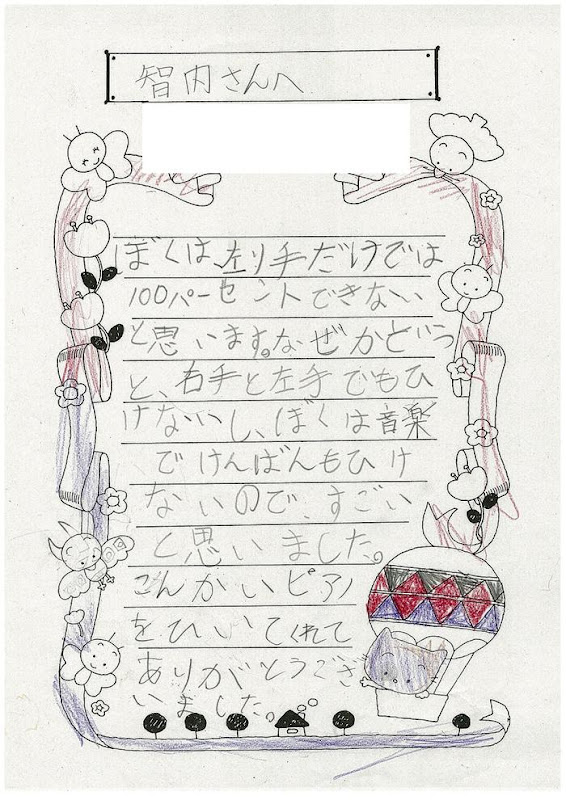 智内さんへ
ぼくは左り手だけでは
100パーセントできない
と思います。なぜかどいう
と、右手と左手でもひ
けないし、ぼくは音楽
でけんばんもひけ
ないので、すごい
と思いました。
こんかいピアノ
をひいてくれて
ありがとうござ
いました。